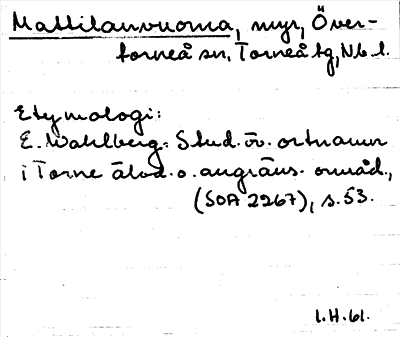 Mattilanvuoma, myr, Över-
torneå sn, Torneå tg, Nb. l.
Etymologi:
E. Wahlberg: Stud. öv. ortnamn
i Torne älvd. o. angräns. områd.,
(SOA 2267), s. 53.
1.H.61.